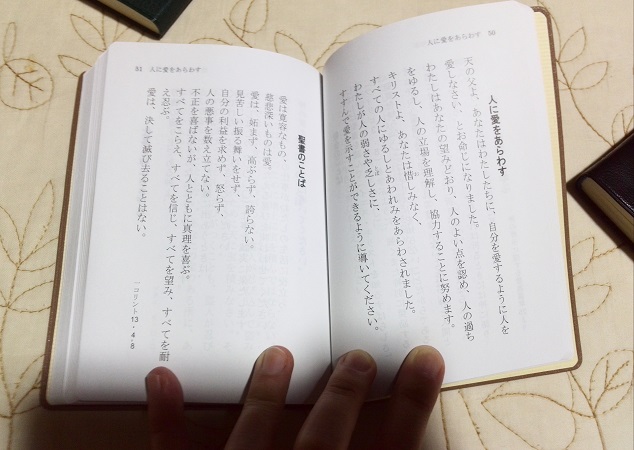 人に愛をあらわす 50
人に愛をあらわす
天の父よ、あなたはわたしたちに、自分を愛するように人を
愛しなさい、とお命じになりました。
わたしはあなたの望みどおり、人のよい点を認め、人の過ち
をゆるし、人の立場を理解し、協力することに努めます。
キリストよ、あなたは惜しみなく、
すべての人にゆるしとあわれみをあらわされました。
わたしが人の弱さや乏しさに、
すすんで愛を示すことができるように導いてください。
51 人に愛をあらわす
聖書のことば
愛は寛容なもの、
慈悲深いものは愛。
愛は、妬まず、高ぶらず、誇らない。
見苦しい振る舞いをせず、
自分の利益を求めず、怒らず、
人の悪事を数え立てない。
不正を喜ばないが、人とともに真理を喜ぶ。
すべてをこらえ、すべてを信じ、すべてを望み、すべてを耐
え忍ぶ。
愛は、決して滅び去ることはない。
一コリント13・4-8